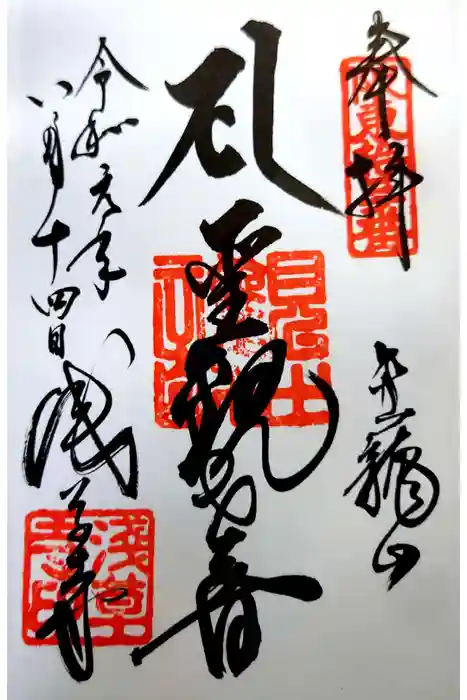 奉拝
金龍山
聖観世音
令和元年
八月十四日
浅草寺
淺草寺印